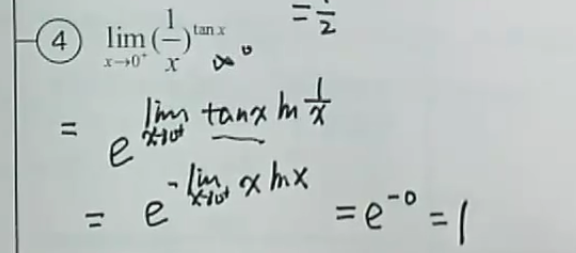 = 1/2
④ lim_{x→0⁺} (1/x)^{tan x} ∞⁰
= e^{lim_{x→0⁺} tanx ln 1/x}
= e^{-lim_{x→0⁺} x lnx} = e^{-0} = 1